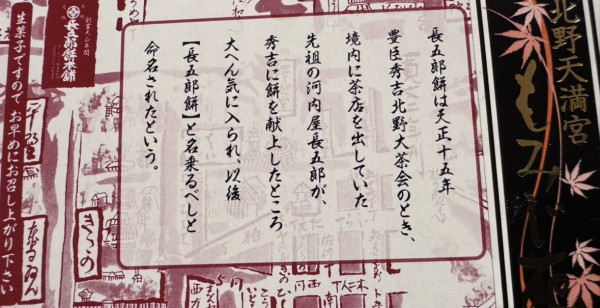 北野天満宮
もみじ
長五郎餅は天正十五年
豊臣秀吉北野大茶会のとき、
境内に茶店を出していた
先祖の河内屋長五郎が、
秀吉に餅を献上したところ
大へん気に入られ、以後
【長五郎餅】と名乗るべしと
命名されたという。
創業天正年間
長五郎餅本舗
生菓子ですので お早めにお召し上がり下さい
きたの